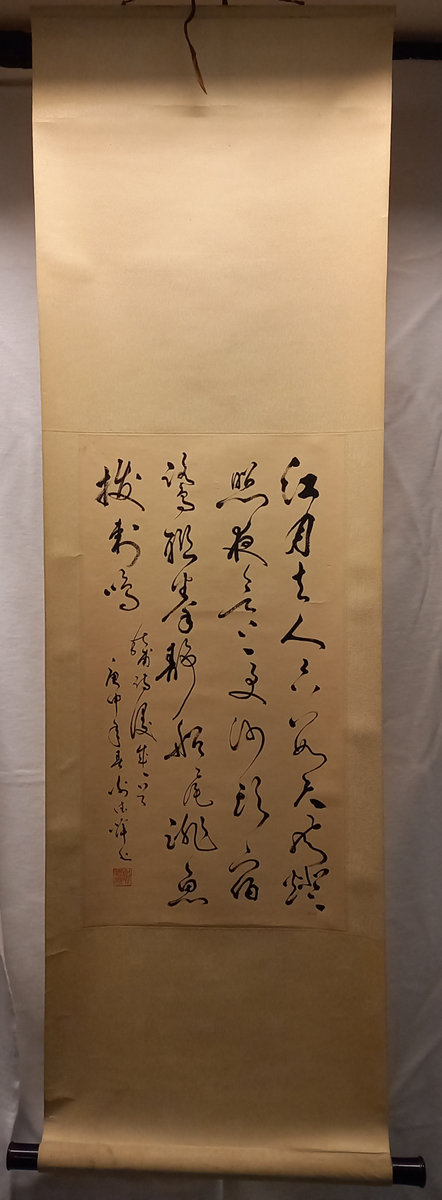 江月去人只數尺風燈
照夜欲三更沙頭宿
鷺聯拳靜船尾跳魚
撥剌鳴
杜甫詩漫成一首
庚申年春